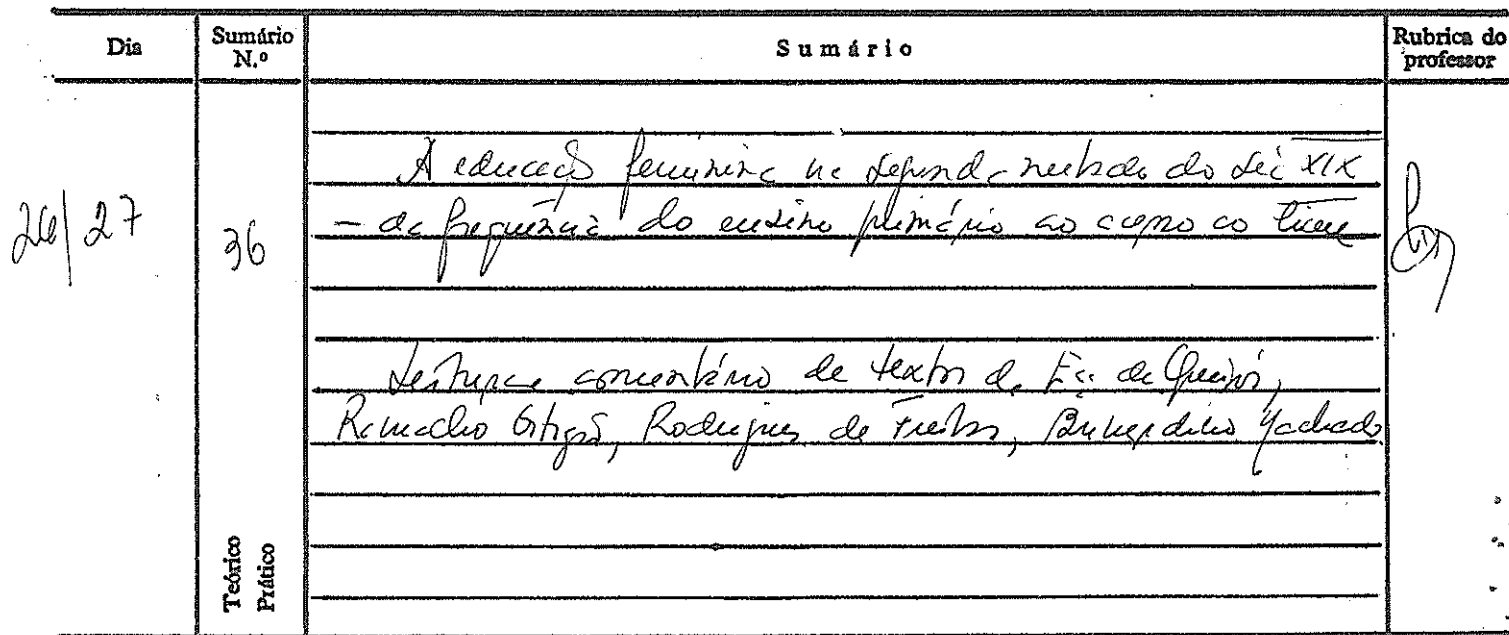 Dia Sumário N.º Sumário Rubrica do professor
26/27 36
A educação feminina na segunda metade do séc XIX
– da frequência do ensino primário ao acesso ao liceu
Leitura e comentário de textos de Eça de Queirós,
Ramalho Ortigão, Rodrigues de Freitas, Bernardino Machado
Teórico
Prático